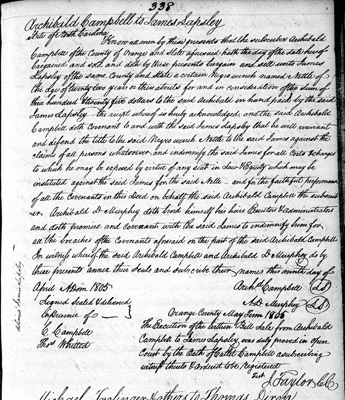 338
Archibald Campbell to James Lapsley
State of North Carolina
Know all men by these presents that the subscriber Archibald
Campbell of the County of Orange and State aforesaid hath the day of the date hereof
bargained and sold and doth by these presents bargain and sell unto James
Lapsley of the same County and State a certain Negro wench named Nettle of
the age of twenty two years or thereabouts for and in consideration of the sum of
three hundred & twenty five dollars to the said Archibald in hand paid by the said
James Lapsley the receipt whereof is hereby acknowledged, and the said Archibald
Campbell doth Covenant to and with the said James Lapsley that he will warrant
and defend the title to the said Negro wench Nettle to the said James against the
claims of all persons whatsoever, and indemnify the said James for all Costs & charges
to which he may be exposed by virtue of any suit in Law & Equity which may be
instituted against the said James for the said Nettle and for the faithful performance
of all the Covenants in this Deed on behalf of the said Archibald Campbell the subscri-
er. Archibald D. Murphey doth bind himself his heirs Executors & Administrators
and doth promise and Covenant with the said James to indemnify him for
all the breaches of the Covenants aforesaid on the part of the said Archibald Campbell
In witness whereof the said Archibald Campbell and Archibald D. Murphey do by
these presents annex their seals and subscribe their names this ninth day of
April Adom 1805
Archd. Campbell
Signed Sealed & delivered
In presence of
Ad. Murphey
E Campbell
Thos. Whitted
Orange County May Term 1805
The Execution of the within Bill Sale from Archibald
Campbell to James Lapsley was duly proved in Open
Court by the Oath of Campbell a subscribing
witness thereto & ordered to be registered
Test
J Taylor CC
James Lapsley
to Thomas